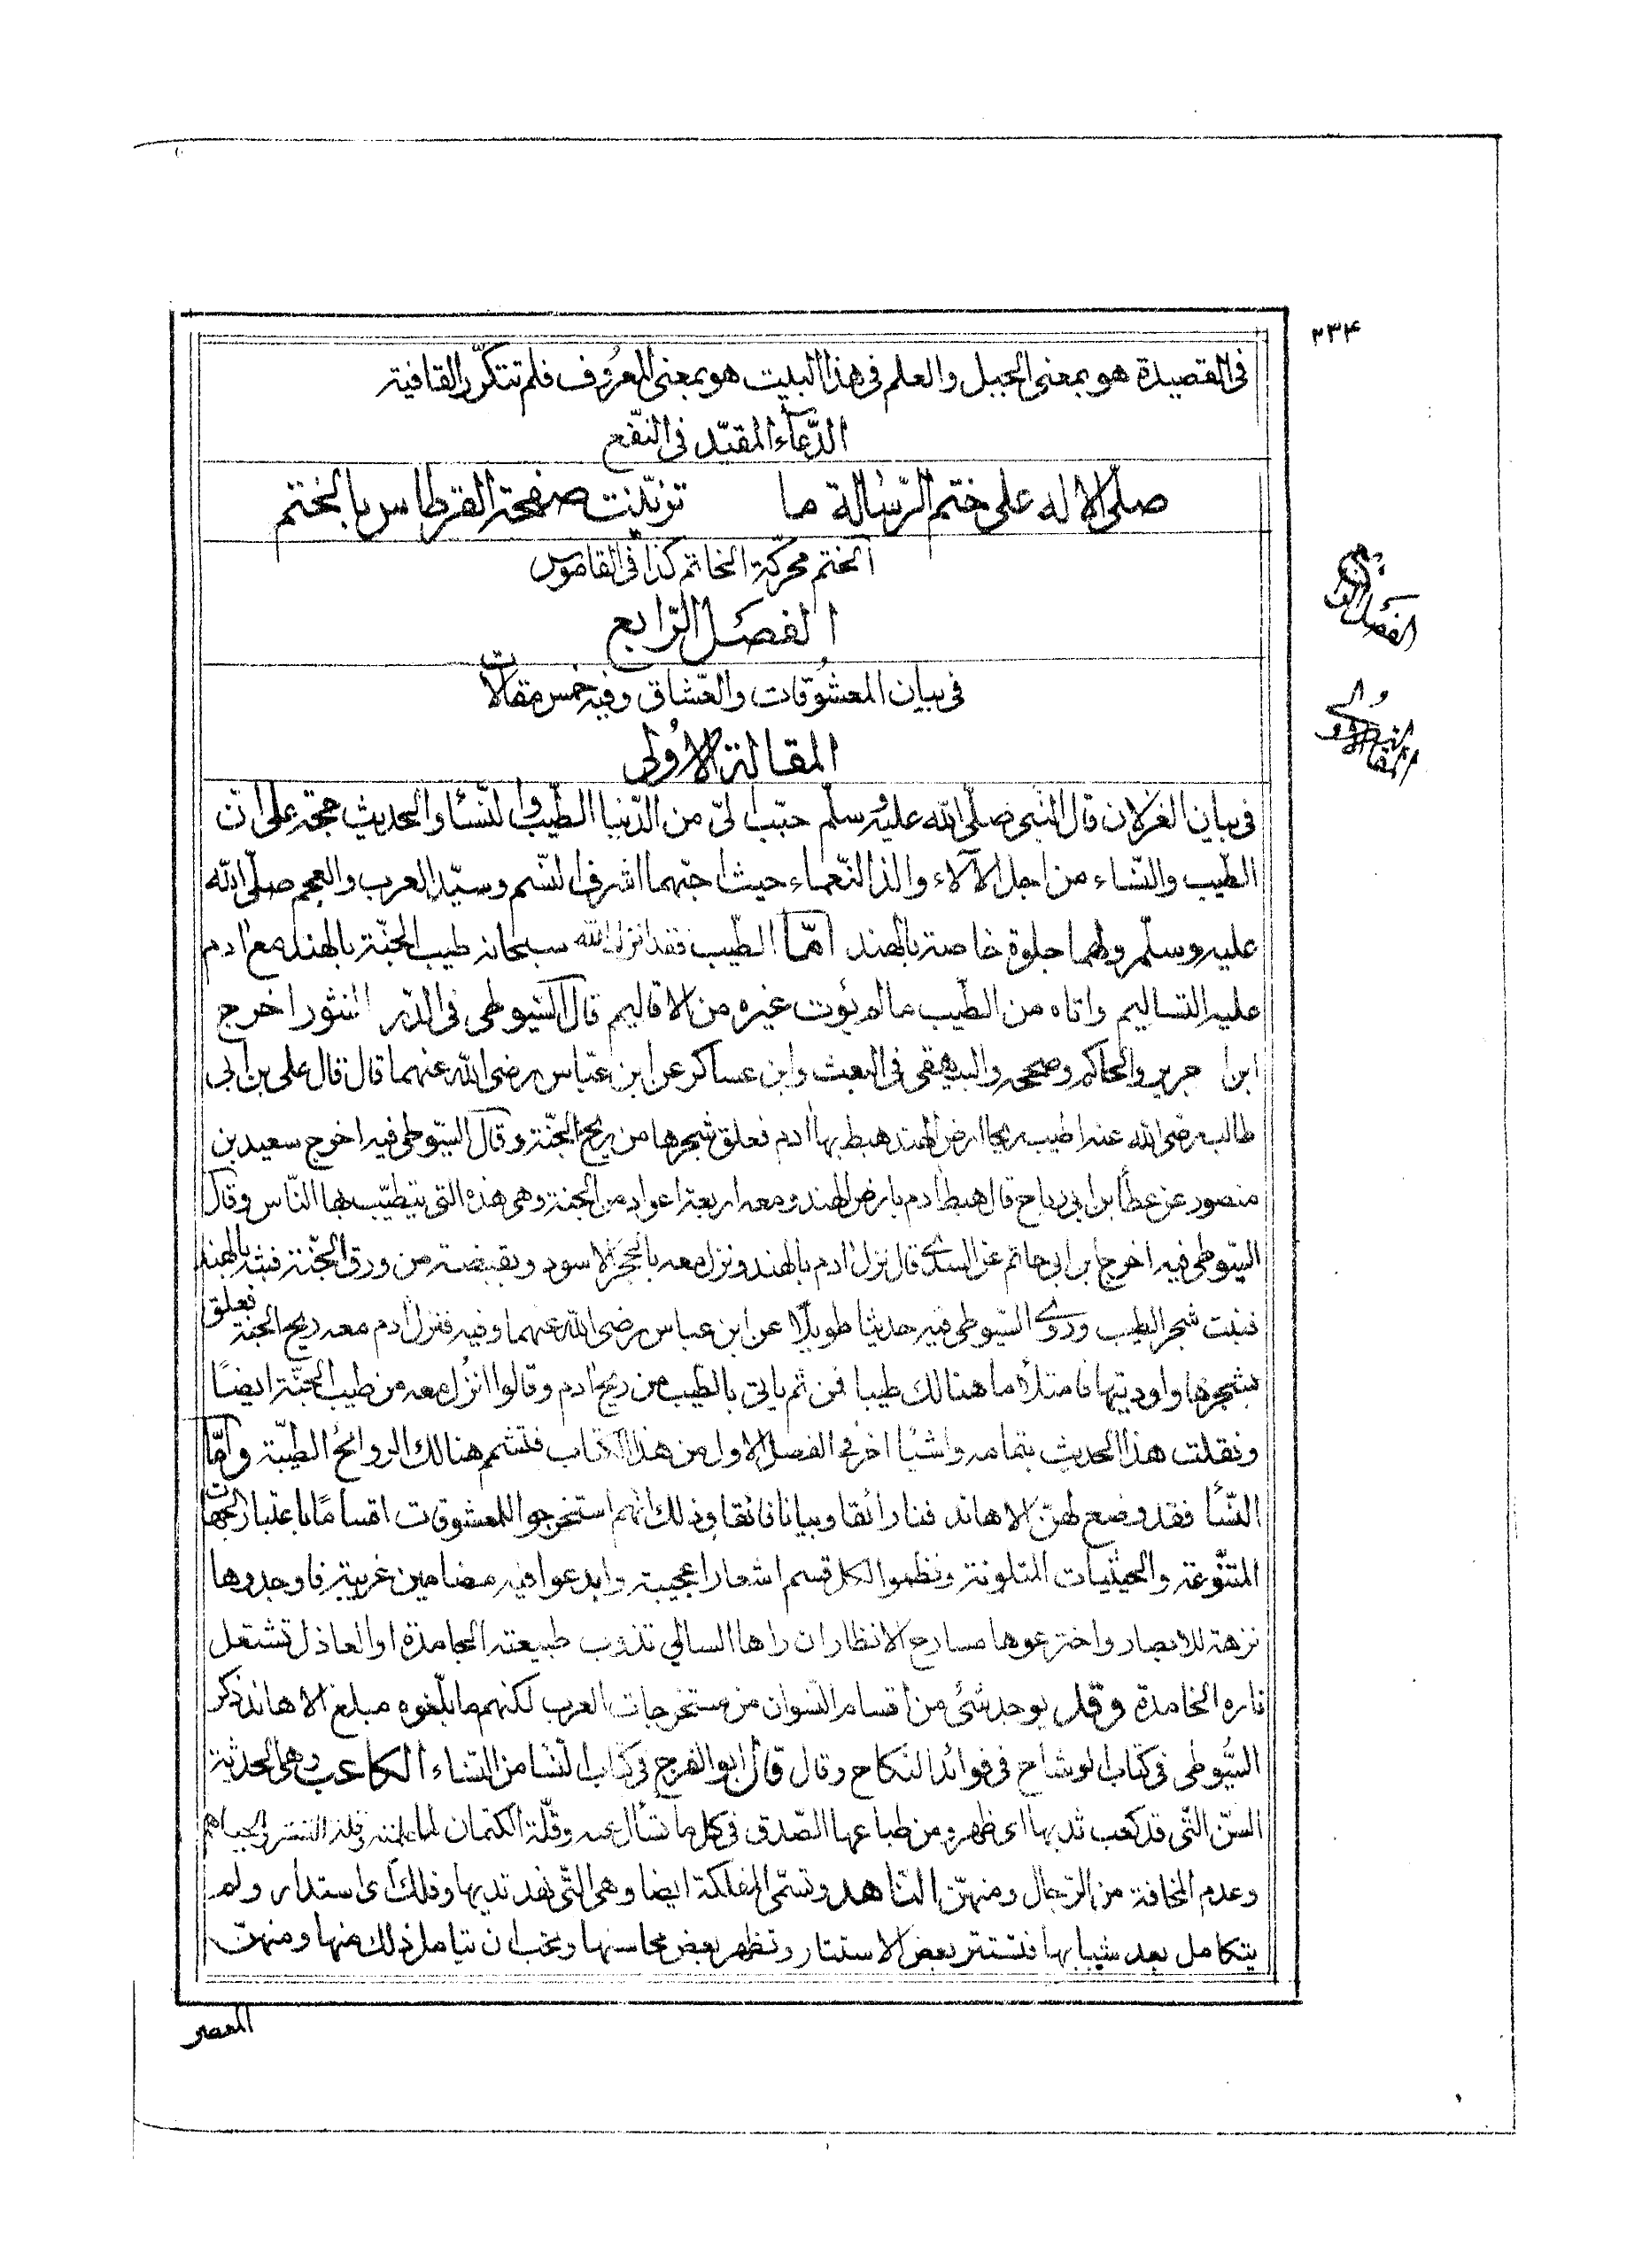 ٢٣٤
فى القصيدة هو بمعنى الجبل والعلم فى هذا البيت هو بمعنى المعروف فلم تتكرّر القافية
الدّعاء المقيّد فى النفع
صلّى الاله على ختم الرّسالة ما تزيّنت صفحة القرطاس بالختم
الختم محركة الخاتم كذا فى القاموس
الفصل الرّابع
الفصل الرابع
فى بيان المعشوقات والعشّاق وفيه خمس مقالات
المقالة الأولى
المقالة الاولى
فى بيان الغزلان قال النبى صلّى الله عليه وسلّم حبّب الىّ من الدّنيا الطّيب والنّساء والحديث حجّة على انّ
الطّيب والنّساء من اجل الآلاء والذ النّعماء حيث احبّهما اشرف النّسم وسيّد العرب والعجم صلّى الله
عليه وسلّم ولهما جلوة خاصة بالهند امّا الطّيب فقد انزل الله سبحانه طيب الجنّة بالهند مع ادم
عليه التساليم واتاه من الطّيب ما لم يؤت غيره من الاقاليم قال السّيوطى فى الدّر المنثور اخرج
ابن جرير والحاكم وصححه والبيهقى فى البعث وابن عساكر عن ابن عبّاس رضى الله عنهما قال قال على بن ابى
طالب رضى الله عنه اطيب ريحا ارض الهند هبط بها ادم فعلق شجرها من ريح الجنّة وقال السّيوطى فيه اخرج سعيد بن
منصور عن عطأ بن ابى رباح قال هبط ادم بارض الهند ومعه اربعة اعواد من الجنة وهى هذه التى يتطيّب بها النّاس وقال
السّيوطى فيه اخرج ابن ابى حاتم عن السدى قال نزل ادم بالهند ونزل معه بالحجر الاسود وبقبضة من ورق الجنّة فبثه بالهند
فنبتت شجر الطيب وروى السّيوطى فيه حديثا طويلا عن ابن عباس رضى الله عنهما وفيه فنزل ادم معه ريح الجنة فعلق
بشجرها واوديتها فامتلأ ما هنالك طيبا فمن ثم ياتى بالطيب من ريح ادم وقالوا انزل معه من طيب الجنّة ايضاً
ونقلت هذا الحديث بتمامه واشيئا اخر فى الفصل الاول من هذا الكتاب فلتشم هنالك الروائح الطيّبة وامّا
النّسأ فقد وضع لهنّ الاهاند فنا رائقا وبيانا فائقا وذلك انهم استخرجوا للمعشوقات اقساماً باعتبار الجهات
المتنوّعة والحيثيات المتلونة ونظموا لكل قسم اشعارا عجيبة وابدعوا فيه مضامين غريبة فاوجدوها
نزهة للابصار واخترعوها مسارح الانظار ان راها السالى تذوب طبيعته الجامدة او العاذل تشتعل
ناره الخامدة وقد يوجد شئ من اقسام النّسوان من مستخرجات العرب لكنهم ما بلّغوه مبلغ الاهاند ذكر
السّيوطى فى كتاب الوشاح فى فوائد النكاح وقال قال ابو الفرج فى كتاب النّسا من النّساء الكاعب وهى الحديثة
السّنّ التّى قد كعب ثديها اى ظهر ومن طباعها الصّدق فى كل ما تسأل عنه وقلّة الكتمان لما علمته وقلة التستر والحياء
وعدم المخافة من الرّجال ومنهنّ النّاهد وتسمّى المفلكة ايضا وهى التّى نهد ثديها وفلك اى استدار ولم
يتكامل بعد شبابها فتستتر بعض الاستتار وتظهر بعض محاسنها وتحب ان يتامل ذلك منها ومنهنّ
المعصر